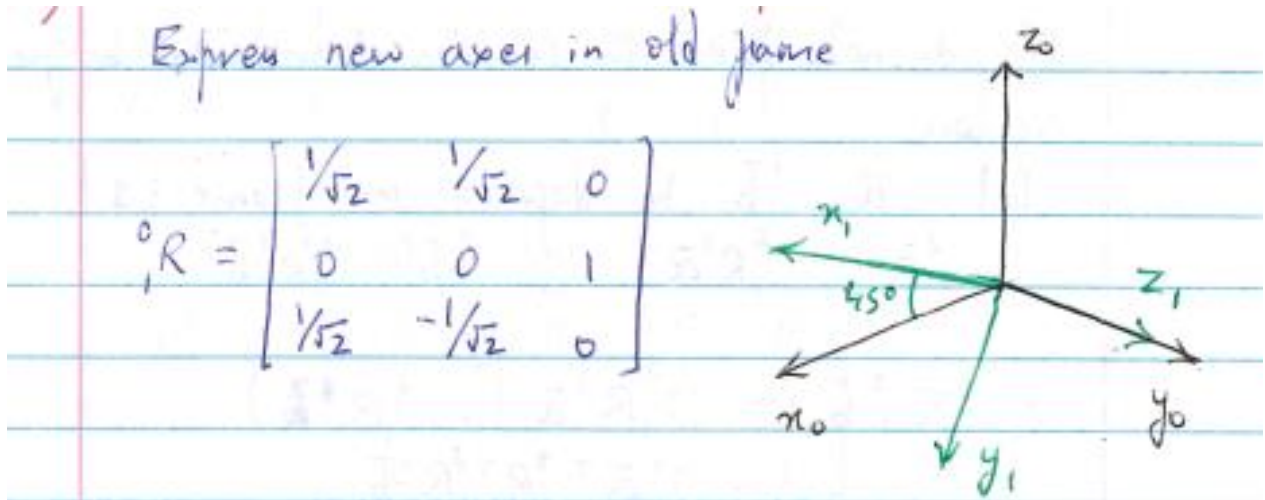 Express new axes in old frame
z₀
⁰₁R = [ 1/√2 1/√2 0
0 0 1
1/√2 -1/√2 0 ]
x₁
45°
z₁
x₀
y₀
y₁